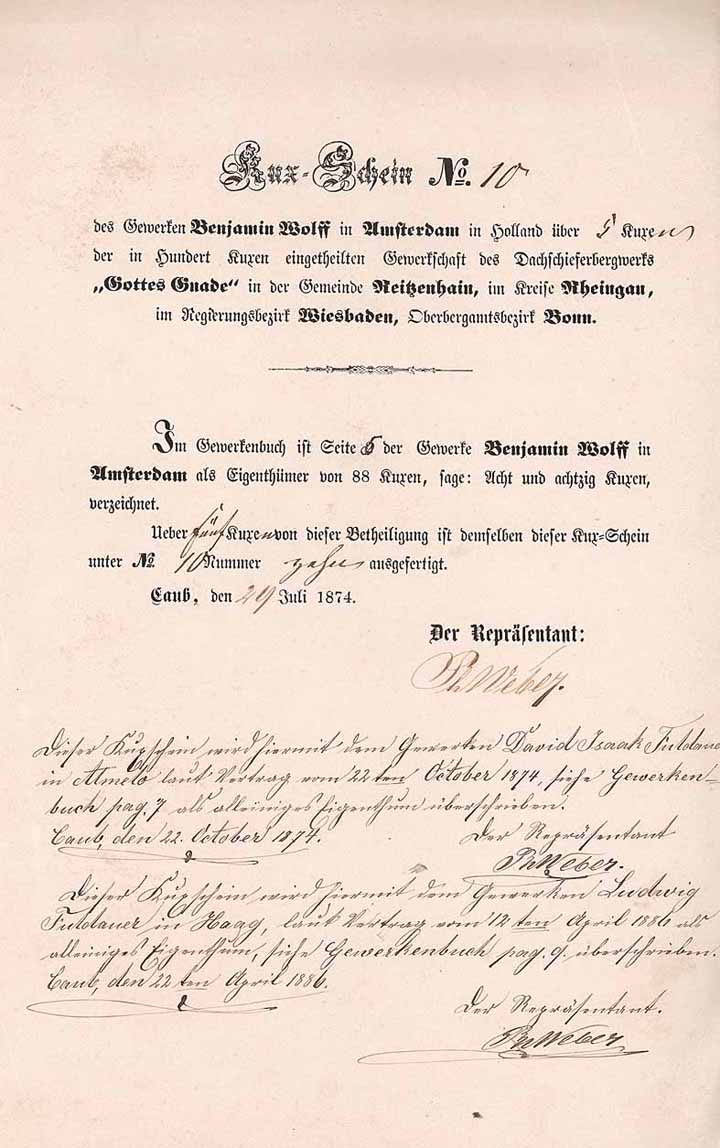 Kux-Schein No. 10
des Gewerken Benjamin Wolff in Amsterdam in Holland über 5 Kuxen
der in Hundert Kuxen eingetheilten Gewerkschaft des Dachschieferbergwerks
„Gottes Gnade“ in der Gemeinde Reitzenhain, im Kreise Rheingau,
im Regierungsbezirk Wiesbaden, Oberbergamtsbezirk Bonn.
Im Gewerkenbuch ist Seite 6 der Gewerke Benjamin Wolff in
Amsterdam als Eigenthümer von 88 Kuxen, sage: Acht und achtzig Kuxen,
verzeichnet.
Ueber fünf Kuxen von dieser Betheiligung ist demselben dieser Kux-Schein
unter No. 10 Nummer zehn ausgefertigt.
Caub, den 29 Juli 1874.
Der Repräsentant:
Ph Weber.
Dieser Kuxschein wird hiermit dem Gewerken David Isaak Fuldauer
in Almelo laut Vertrag vom 22 ten October 1874, siehe Gewerken-
buch pag. 7 als alleiniges Eigenthum überschrieben.
Caub, den 22. October 1874.
Der Repräsentant
Ph Weber.
Dieser Kuxschein wird hiermit dem Gewerken Ludwig
Fuldauer in Haag, laut Vertrag vom 12 ten April 1886 als
alleiniges Eigenthum, siehe Gewerkenbuch pag. 9. überschrieben.
Caub, den 22 ten April 1886.
Der Repräsentant.
Ph Weber